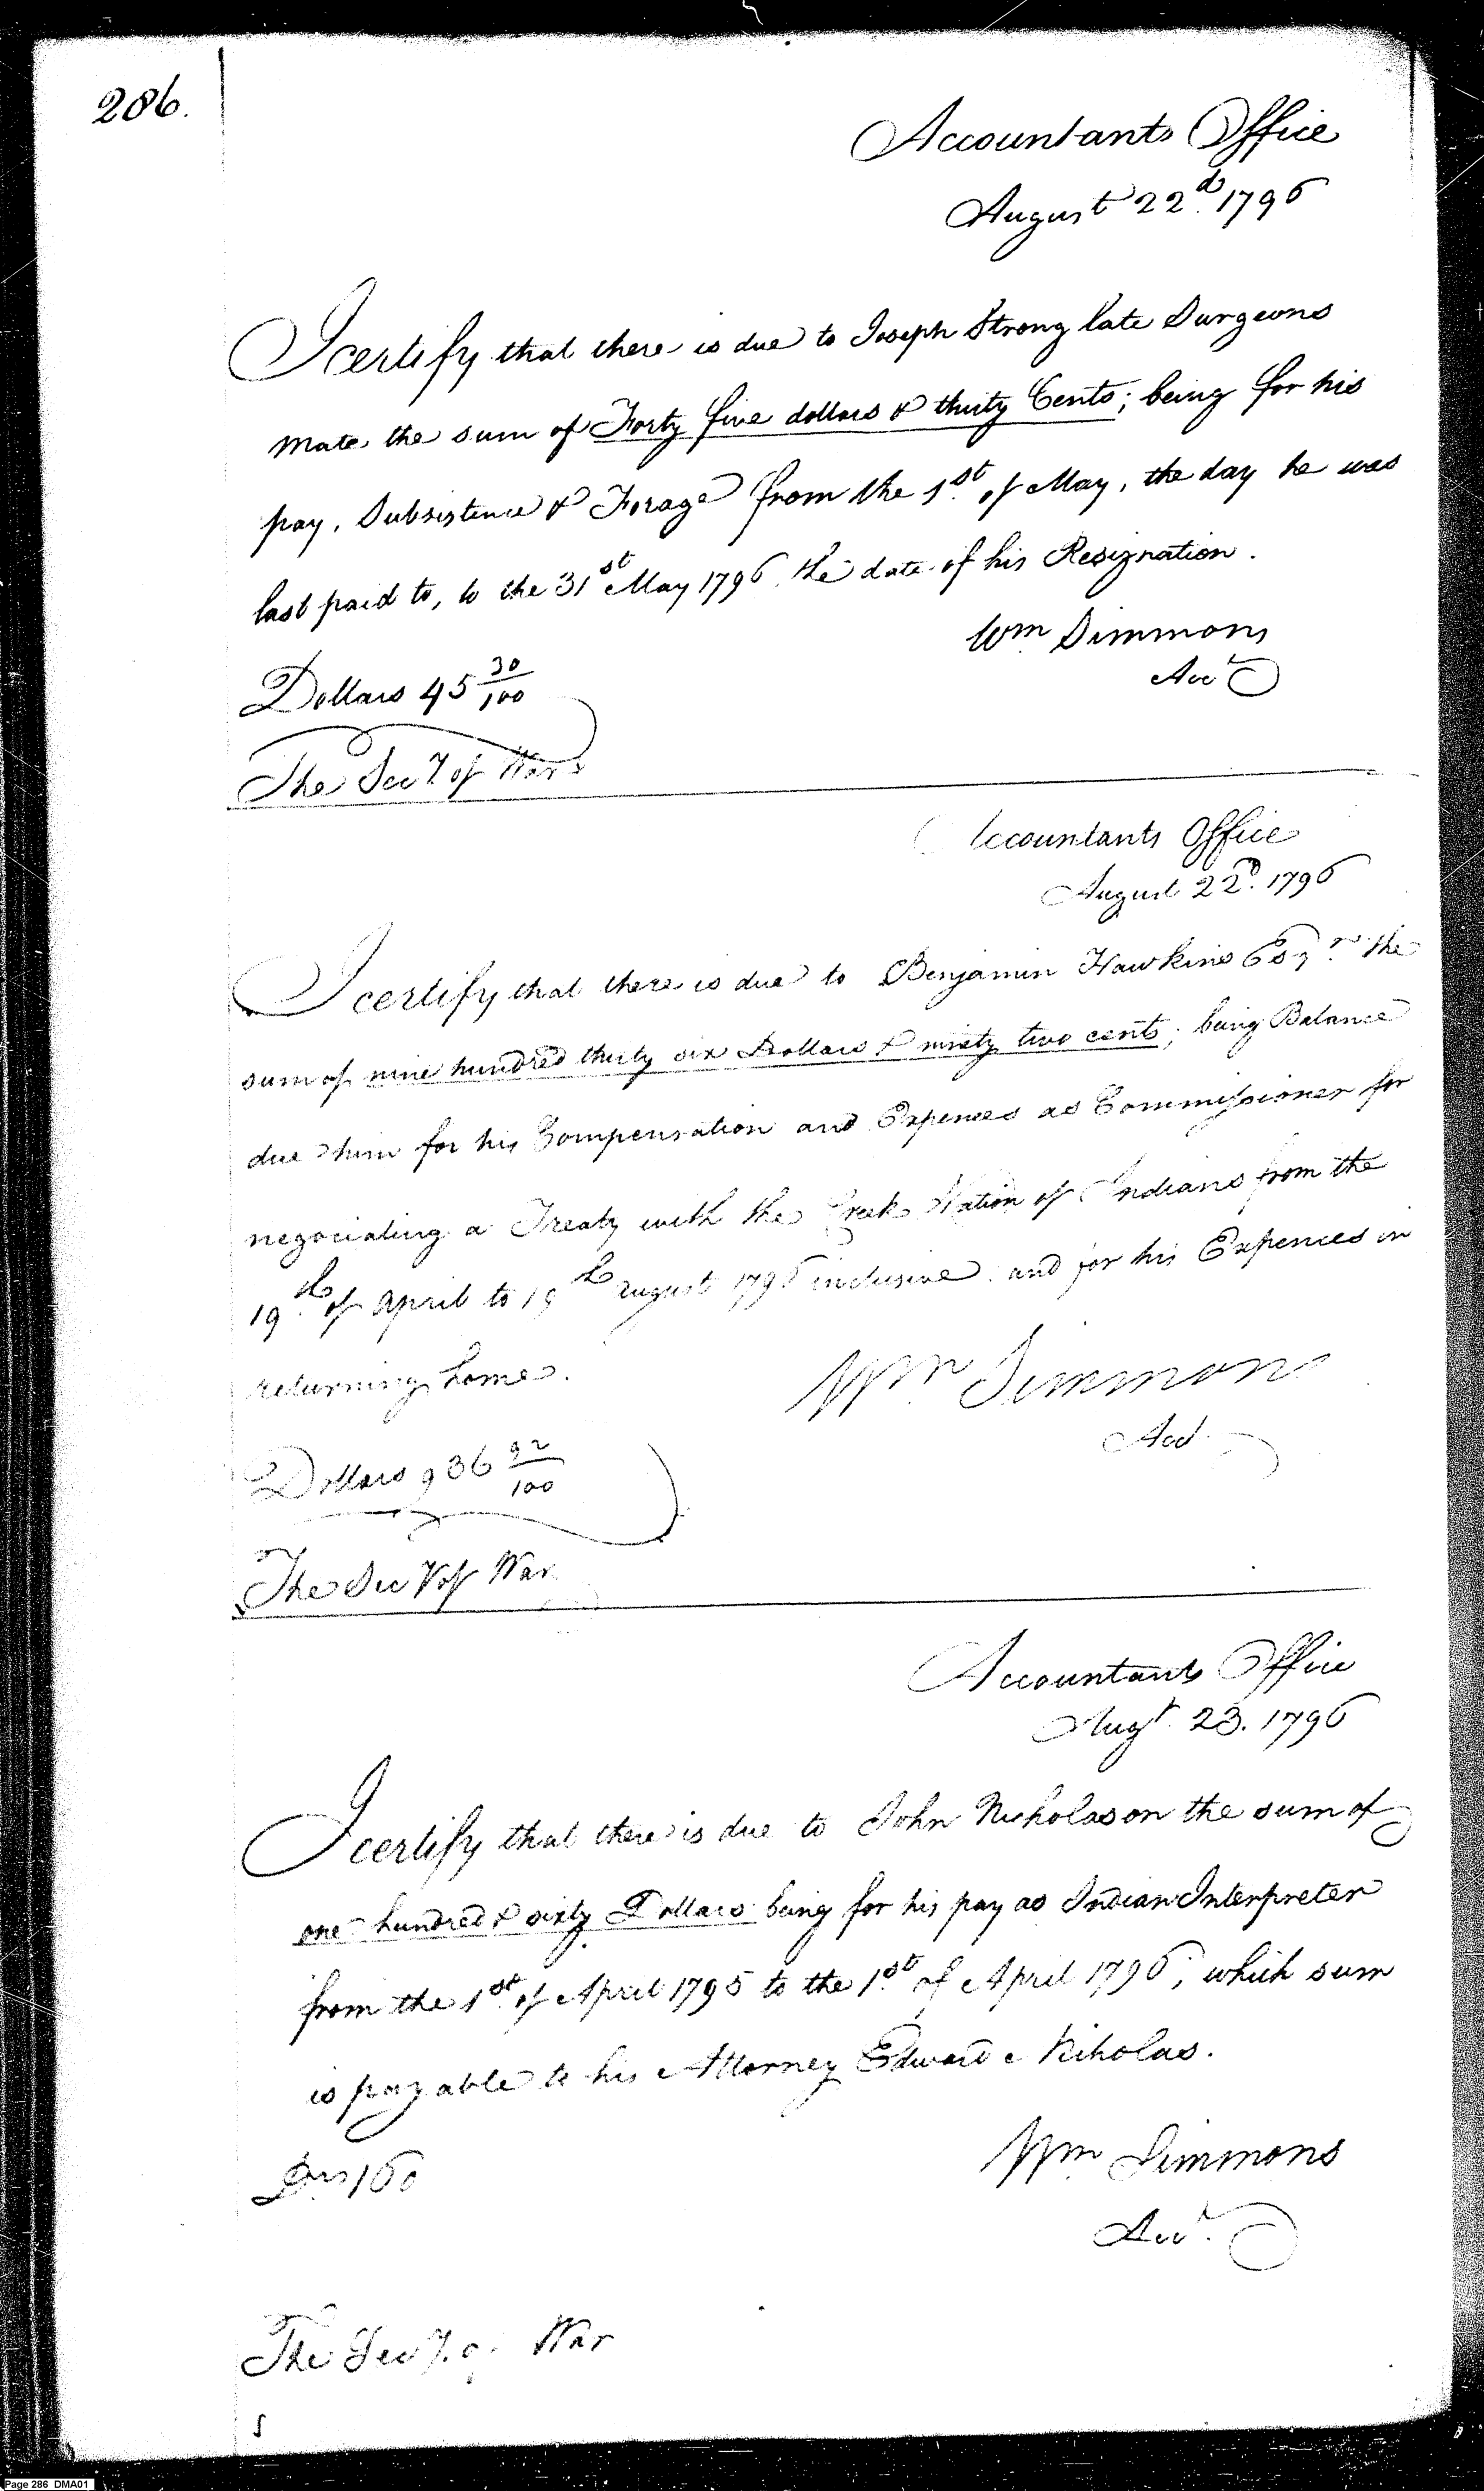 286.
Accountants Office
August 22d. 1796
I certify that there is due to Joseph Strong late Surgeons
Mate, the sum of Forty five dollars & thirty Cents; being for his
pay, Subsistence & Forage from the 1st. of May, the day he was
last paid to, to the 31st May 1796. the date of his Resignation.
Wm Simmons
Acct
Dollars 45 30/100
The Secy. of War
Accountants Office
August 22d. 1796
I certify that there is due to Benjamin Hawkins Esqr. the
sum of nine hundred thirty six Dollars & ninety two cents; being Balance
due him for his Compensation and Expences as Commissioner for
negociating a Treaty with the Creek Nation of Indians from the
19th. of April to 19th August 1796 inclusive. and for his Expences in
returning home.
Wm Simmons
Acct
Dollars 936 92/100
The Secy of War
Accountants Office
Augt. 23. 1796
I certify that there is due to John Nicholason the sum of
one hundred & sixty Dollars being for his pay as Indian Interpreter
from the 1st. of April 1795 to the 1st. of April 1796, which sum
is payable to his Attorney Edward Niholas.
Drs 160
Wm Simmons
Acct.
The Secy. of War
Page 286 DMA01